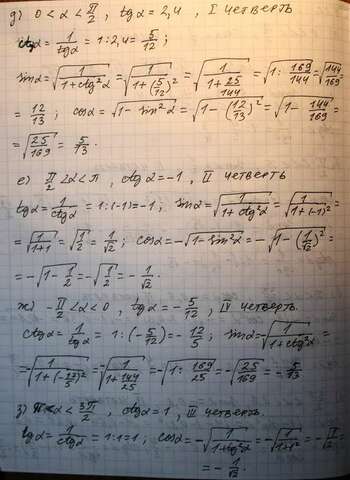 д) 0 < α < π/2, tgα = 2,4, I четверть
ctgα = 1/tgα = 1:2,4 = 5/12;
sinα = √(1/(1+ctg²α)) = √(1/(1+(5/12)²)) = √(1/(1+25/144)) = √(1:169/144) = √(144/169) =
= 12/13; cosα = √(1-sin²α) = √(1-(12/13)²) = √(1-144/169) =
= √(25/169) = 5/13.
е) π/2 < α < π, ctgα = -1, II четверть
tgα = 1/ctgα = 1:(-1) = -1; sinα = √(1/(1+ctg²α)) = √(1/(1+(-1)²)) =
= √(1/(1+1)) = √(1/2) = 1/√2; cosα = -√(1-sin²α) = -√(1-(1/√2)²) =
= -√(1-1/2) = -√(1/2) = -1/√2.
ж) -π/2 < α < 0, tgα = -5/12, IV четверть.
ctgα = 1/tgα = 1:(-5/12) = -12/5; sinα = -√(1/(1+ctg²α)) =
= -√(1/(1+(-12/5)²)) = -√(1/(1+144/25)) = -√(1:169/25) = -√(25/169) = -5/13
з) π < α < 3π/2, ctgα = 1, III четверть.
tgα = 1/ctgα = 1:1 = 1; cosα = -√(1/(1+tg²α)) = -√(1/(1+1²)) = -√(1/2) =
= -1/√2.